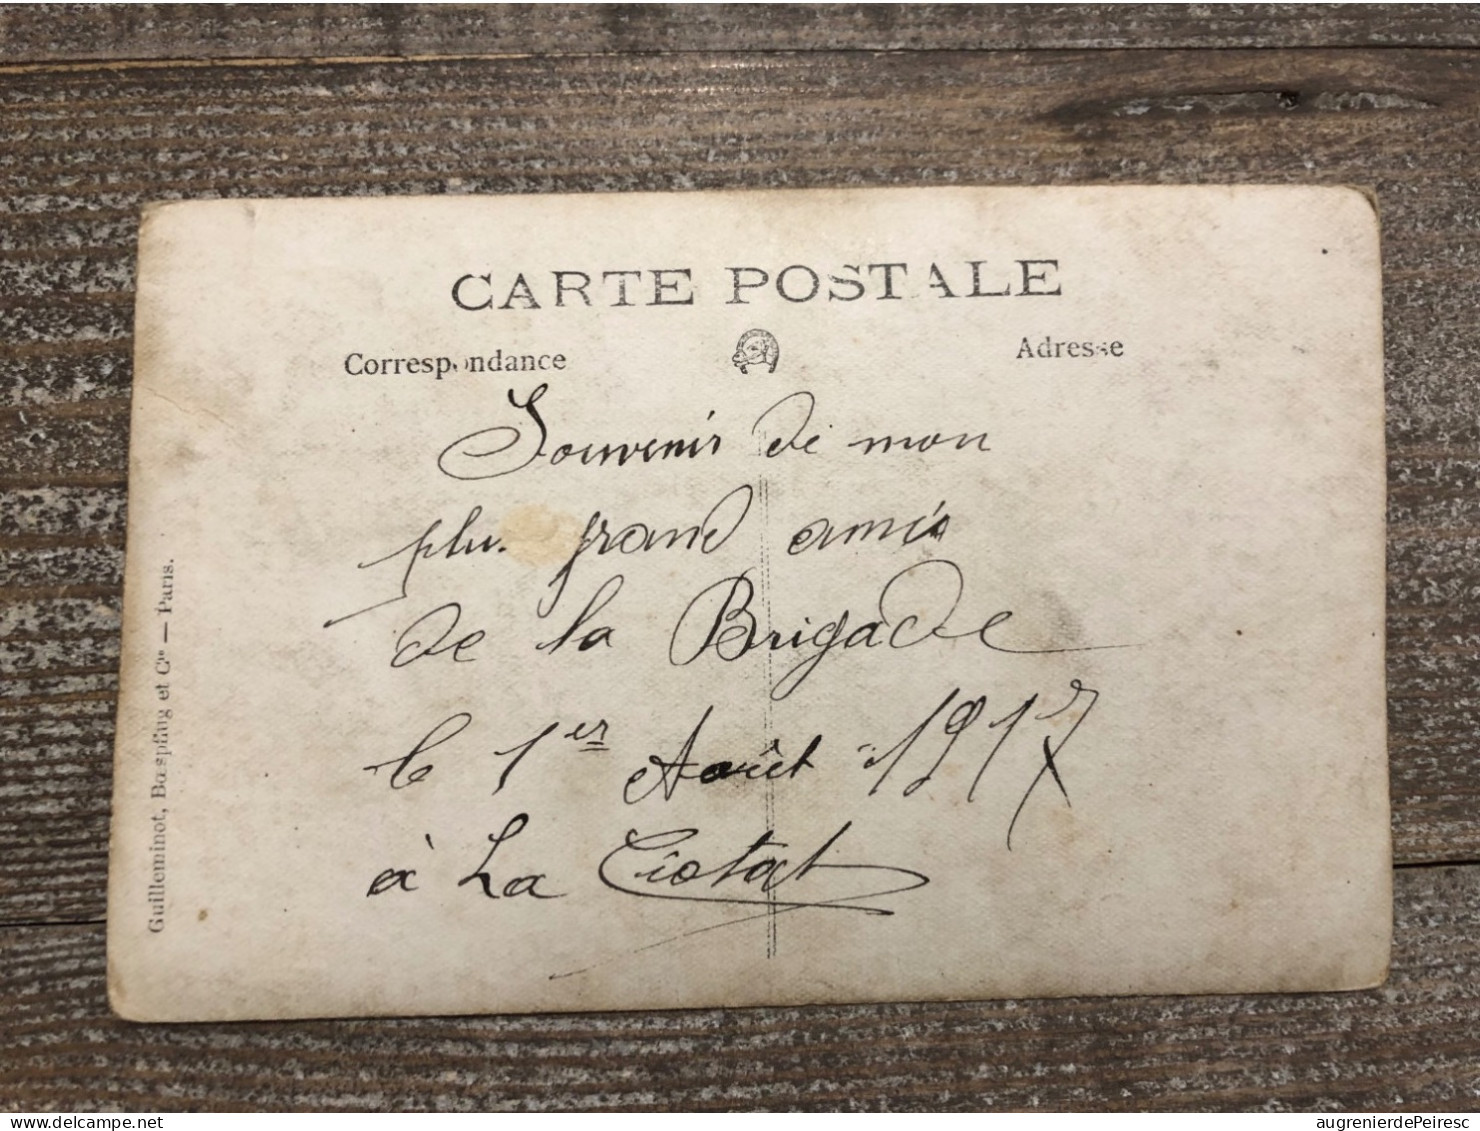 CARTE POSTALE
Correspondance
Adresse
Souvenir de mon
plus grand ami
de la Brigade
le 1er Août 1917
à La Ciotat
Guilleminot, Bœspflug et Cie — Paris.
augrenierdePeiresc